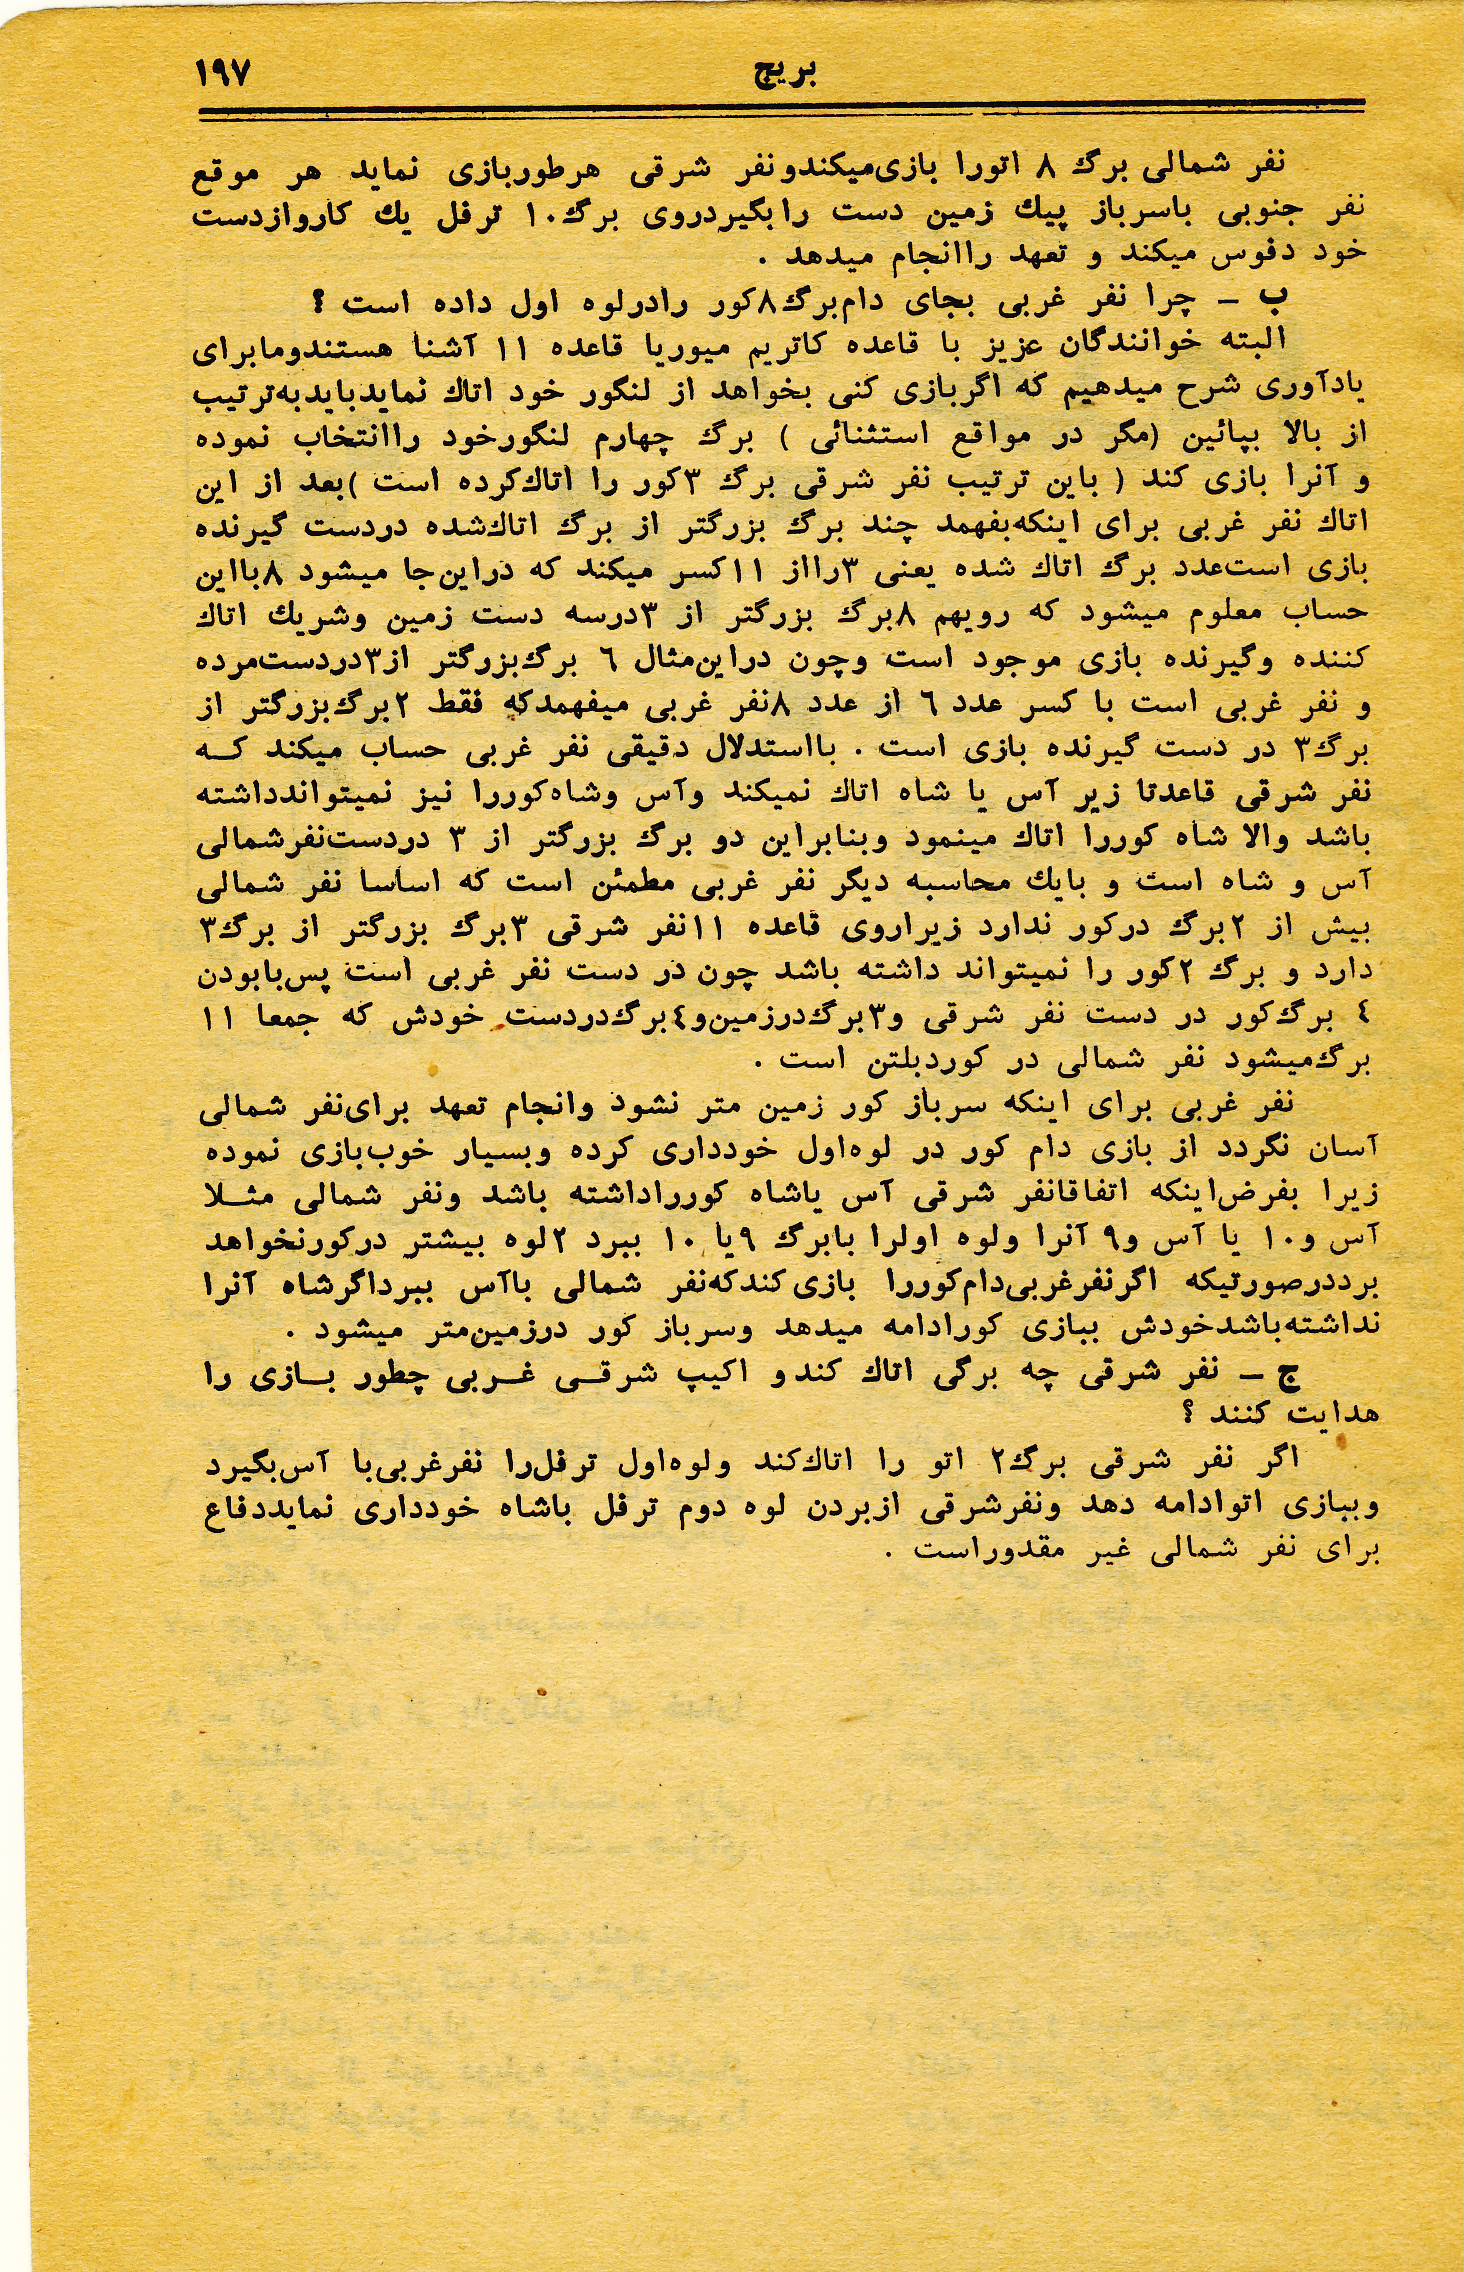 بریج ۱۹۷
نفر شمالی برگ ۸ اتورا بازی‌میکندونفر شرقی هرطوربازی نماید هر موقع
نفر جنوبی باسرباز پیك زمین دست رابگیردروی برگ۱۰ ترفل یك کاروازدست
خود دفوس میکند و تعهد راانجام میدهد .
ب – چرا نفر غربی بجای دام‌برگ۸کور رادرلوه اول داده است ؟
البته خوانندگان عزیز با قاعده کاتریم میوریا قاعده ۱۱ آشنا هستندومابرای
یادآوری شرح میدهیم که اگربازی کنی بخواهد از لنگور خود اتاك نمایدبایدبه‌ترتیب
از بالا بپائین (مگر در مواقع استثنائی ) برگ چهارم لنگورخود راانتخاب نموده
و آنرا بازی کند ( باین ترتیب نفر شرقی برگ ۳کور را اتاك‌کرده است )بعد از این
اتاك نفر غربی برای اینکه‌بفهمد چند برگ بزرگتر از برگ اتاك‌شده دردست گیرنده
بازی است‌عدد برگ اتاك شده یعنی ۳رااز ۱۱کسر میکند که دراین‌جا میشود ۸بااین
حساب معلوم میشود که رویهم ۸برگ بزرگتر از ۳درسه دست زمین وشریك اتاك
کننده وگیرنده بازی موجود است وچون دراین‌مثال ٦ برگ‌بزرگتر از۳دردست‌مرده
و نفر غربی است با کسر عدد ٦ از عدد ۸نفر غربی میفهمدکه فقط ۲برگ‌بزرگتر از
برگ۳ در دست گیرنده بازی است . بااستدلال دقیقی نفر غربی حساب میکند کـه
نفر شرقی قاعدتا زیر آس یا شاه اتاك نمیکند وآس وشاه‌کوررا نیز نمیتواندداشته
باشد والا شاه کوررا اتاك مینمود وبنابراین دو برگ بزرگتر از ۳ دردست‌نفرشمالی
آس و شاه است و بایك محاسبه دیگر نفر غربی مطمئن است که اساسا نفر شمالی
بیش از ۲برگ درکور ندارد زیراروی قاعده ۱۱نفر شرقی ۳برگ بزرگتر از برگ۳
دارد و برگ ۲کور را نمیتواند داشته باشد چون در دست نفر غربی است پس‌بابودن
٤ برگ‌کور در دست نفر شرقی و۳برگ‌درزمین‌و٤برگ‌دردست خودش که جمعا ۱۱
برگ‌میشود نفر شمالی در کوردبلتن است .
نفر غربی برای اینکه سرباز کور زمین متر نشود وانجام تعهد برای‌نفر شمالی
آسان نگردد از بازی دام کور در لوه‌اول خودداری کرده وبسیار خوب‌بازی نموده
زیرا بفرض‌اینکه اتفاقانفر شرقی آس یاشاه کورراداشته باشد ونفر شمالی مثـلا
آس و۱۰ یا آس و۹ آنرا ولوه اولرا بابرگ ۹یا ۱۰ ببرد ۲لوه بیشتر درکورنخواهد
برددرصورتیکه اگرنفرغربی‌دام‌کوررا بازی‌کندکه‌نفر شمالی باآس ببرداگرشاه آنرا
نداشته‌باشدخودش ببازی کورادامه میدهد وسرباز کور درزمین‌متر میشود .
ج – نفر شرقی چه برگی اتاك کندو اکیپ شرقـی غـربی چطور بـازی را
هدایت کنند ؟
اگر نفر شرقی برگ۲ اتو را اتاك‌کند ولوه‌اول ترفل‌را نفرغربی‌با آس‌بگیرد
وببازی اتوادامه دهد ونفرشرقی ازبردن لوه دوم ترفل باشاه خودداری نمایددفاع
برای نفر شمالی غیر مقدوراست .